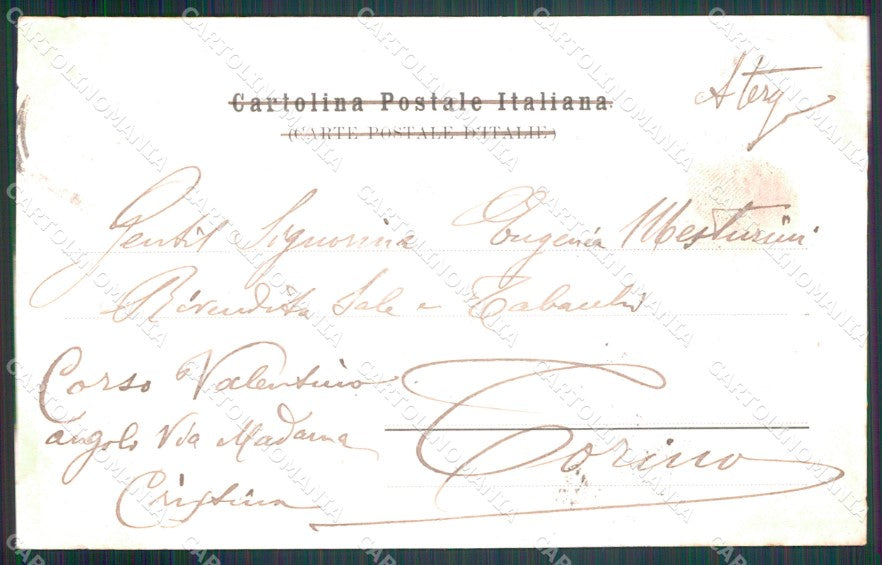 Cartolina Postale Italiana
(CARTE POSTALE D'ITALIE)
A terg
Gentil Signorina Eugenia Mesturini
Rivendita Sale e Tabacchi
Corso Valentino
angolo Via Madama
Cristina
Torino
CARTOLINOMANIA